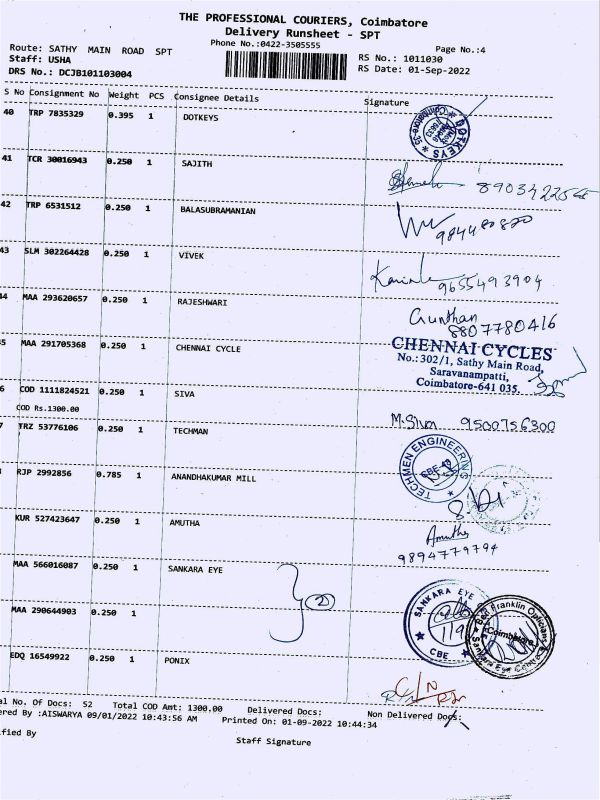 THE PROFESSIONAL COURIERS, Coimbatore
Delivery Runsheet - SPT
Phone No.:0422-3505555
Page No.:4
Route: SATHY MAIN ROAD SPT
Staff: USHA
DRS No.: DCJB101103004
RS No.: 1011030
RS Date: 01-Sep-2022
S No Consignment No Weight PCS Consignee Details Signature
40 TRP 7835329 0.395 1 DOTKEYS
DOTKEYS
Coimbatore-35
41 TCR 30016943 0.250 1 SAJITH
42 TRP 6531512 0.250 1 BALASUBRAMANIAN
43 SLM 302264428 0.250 1 VIVEK
9655493904
44 MAA 293620657 0.250 1 RAJESHWARI
Gunthan
8807780416
5 MAA 291705368 0.250 1 CHENNAI CYCLE
CHENNAI CYCLES
No.: 302/1, Sathy Main Road,
Saravanampatti,
Coimbatore-641 035.
6 COD 1111824521 0.250 1 SIVA
COD Rs.1300.00
M.Siva 9500756300
7 TRZ 53776106 0.250 1 TECHMAN
TECHMEN ENGINEERING
RJP 2992856 0.785 1 ANANDHAKUMAR MILL
KUR 527423647 0.250 1 AMUTHA
Amutha
9894779794
MAA 566016087 0.250 1 SANKARA EYE
2
SANKARA EYE
CBE
MAA 290644903 0.250 1
Ben Franklin Opticians
Coimbatore
Sankara Eye Centre
EDQ 16549922 0.250 1 PONIX
al No. Of Docs: 52 Total COD Amt: 1300.00 Delivered Docs: Non Delivered Docs:
ered By :AISWARYA 09/01/2022 10:43:56 AM Printed On: 01-09-2022 10:44:34
ified By
Staff Signature